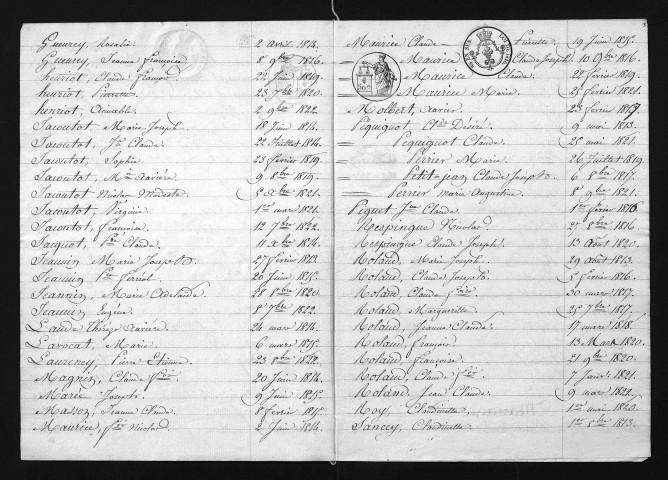 Gueurey, Rosalie 2 avril 1814.
Gueurey, Jeanne françoise 8 9bre 1816.
henriot, Claude françois 22 Juin 1819.
henriot, Pierrette 23 7bre 1820.
henriot, Aimable 2 9bre 1822.
Jacoutot, Marie Joseph 18 Juin 1814.
Jacoutot, Jn Claude 22 Juillet 1814.
Jacoutot, Sophie 23 février 1819.
Jacoutot, Mie Xavière 9 8bre 1819.
Jacoutot Nicolas Modeste 5 Xbre 1821.
Jacoutot, Virginie 1er mars 1821.
Jacoutot, françoise 12 7bre 1822.
Jacquot, Claude 11 Xbre 1814.
Jeannin Marie Joseph 27 février 1813.
Jeannin ferréol 20 Juin 1815.
Jeannin, Marie Adelaide 28 8bre 1820.
Jeannin Eugène 8 7bre 1822.
Laude Thérèse Xavière 24 mars 1814.
Lavocat, Marie 6 mars 1815.
Laurency, Pierre Etienne 25 8bre 1822.
Magnin, Claude 20 Juin 1814.
Marie Joseph 9 Juin 1815.
Masson, Jeanne Claude 8 fevrier 1815.
Maurice, Nicolas 2 Juin 1814.
Maurice Claude Pierrette 19 Juin 1815.
Maurice Claude Joseph 10 9bre 1816.
Maurice Claude 22 février 1819.
Maurice Marie 25 février 1821.
Molbert, Xavier 23 fevrier 1817.
Pequignot, Désiré 9 mai 1813.
Pequignot Claude 25 mai 1821.
Perrier Marie 26 Juillet 1819.
Petit-jean Claude Joseph 6 8bre 1817.
Perrier marie Augustine 8 9bre 1821.
Piquet Claude 1er février 1816.
Respingue Nicolas 27 8bre 1816
Respingue Claude Joseph 13 Août 1820.
Roland, Marie Joseph 29 août 1813.
Roland, Claude Joseph 5 février 1816.
Roland, Claude 30 mars 1817.
Roland Marguerite 25 7bre 1817.
Roland, Jeanne Claude 17 mars 1818.
Roland, françois 13 Mars 1820.
Roland françoise 21 9bre 1820.
Roland, Claude 7 Janv. 1821.
Roland, Jean Claude 9 mars 1822.
Roy, Claudinette 1er mai 1820.
Sancey, Claudinette 1er 8bre 1813.